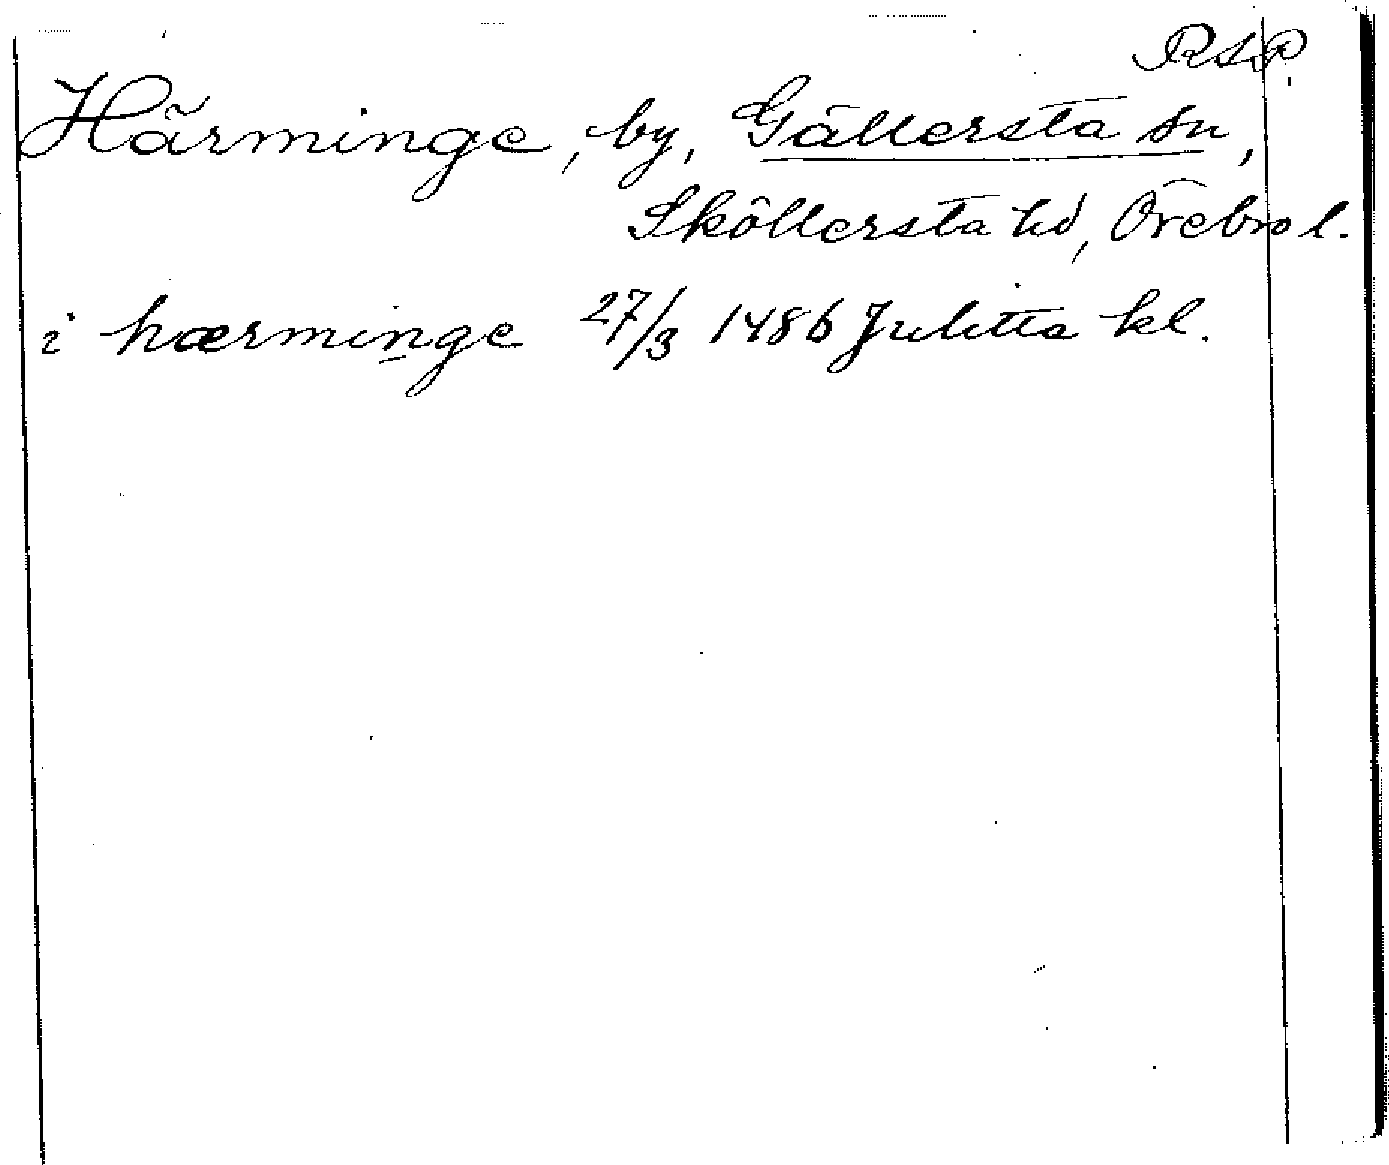 RAP.
Härminge, by, Gällersta sn,
Sköllersta hd, Örebro l.
i hærminge 27/3 1486 Julitta kl.